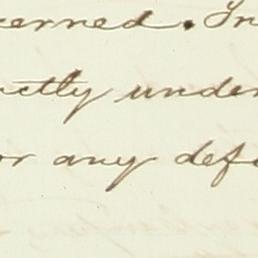 cerned. In
ctly under
or any def